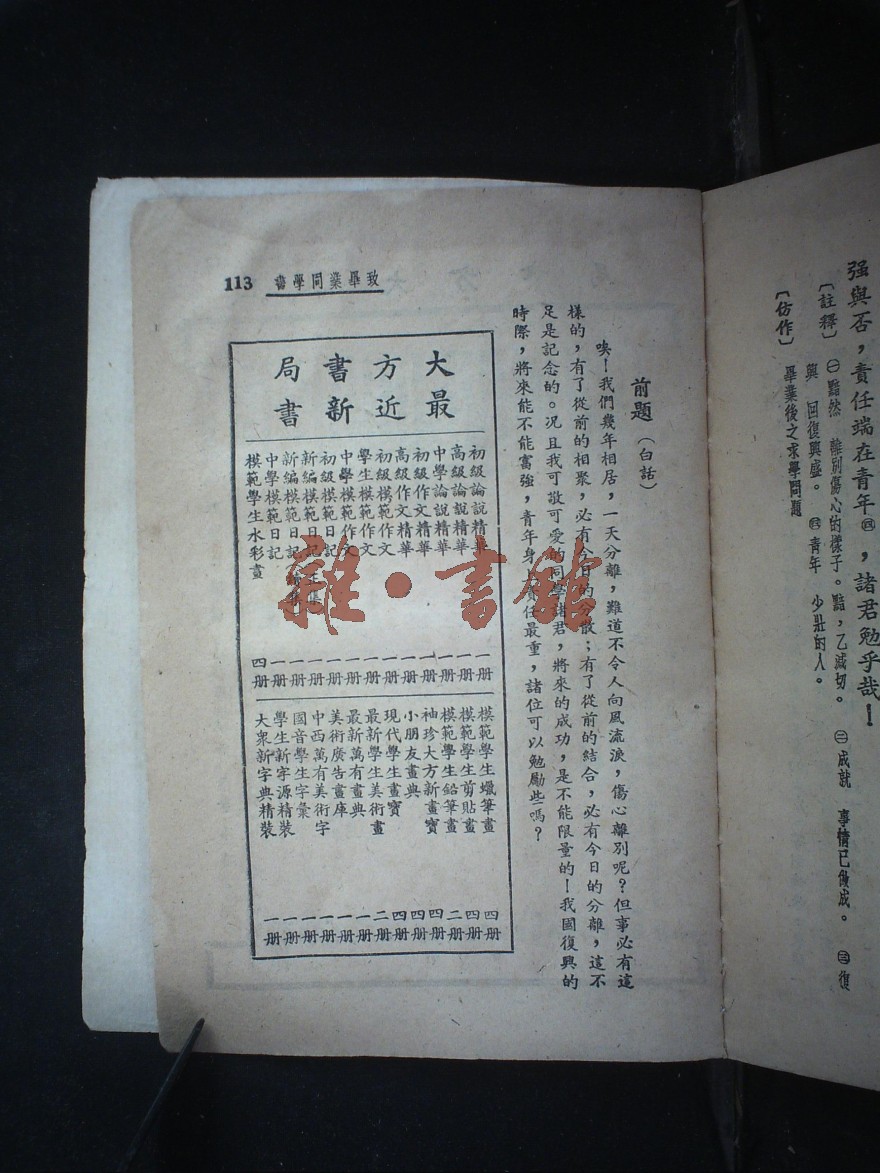 强與否，責任端在青年㊃，諸君勉乎哉！
〔註釋〕㊀黯然　離别傷心的樣子。黯，乙減切。㊁成就　事情已做成。㊂復
興　回復興盛。㊃青年　少壯的人。
〔仿作〕　畢業後之求學問題
前題（白話）
唉！我們幾年相居，一天分離，難道不令人向風流淚，傷心離別呢？但事必有這
樣的，有了從前的相聚，必有今日的分散；有了從前的結合，必有今日的分離，這不
足是記念的。况且我可敬可愛的同學諸君，將來的成功，是不能限量的！我國復興的
時際，將來能不能富強，青年身上責任最重，諸位可以勉勵些嗎？
致畢業同學書
113
大方書局
最近新書
初級論說精華　一册
高級論說精華　一册
中學論說精華　一册
初級作文精華　一册
高級作文精華　一册
初級模範作文　一册
學生模範作文　一册
中學模範作文　一册
初級模範日記　一册
新編模範日記　一册
新編模範日記　一册
中學模範日記　一册
模範學生水彩畫　四册
模範學生蠟筆畫　四册
模範學生剪貼畫　四册
模範學生鉛筆畫　二册
袖珍大方新畫寶　四册
小朋友畫典　四册
現代學生畫寶　四册
最新學生美術畫　二册
最新萬有畫典　一册
美術廣告畫庫　一册
中西萬有美術字　一册
國音學生字彙　一册
學生新字源精裝　一册
大衆新字典精裝　一册
雜·書館